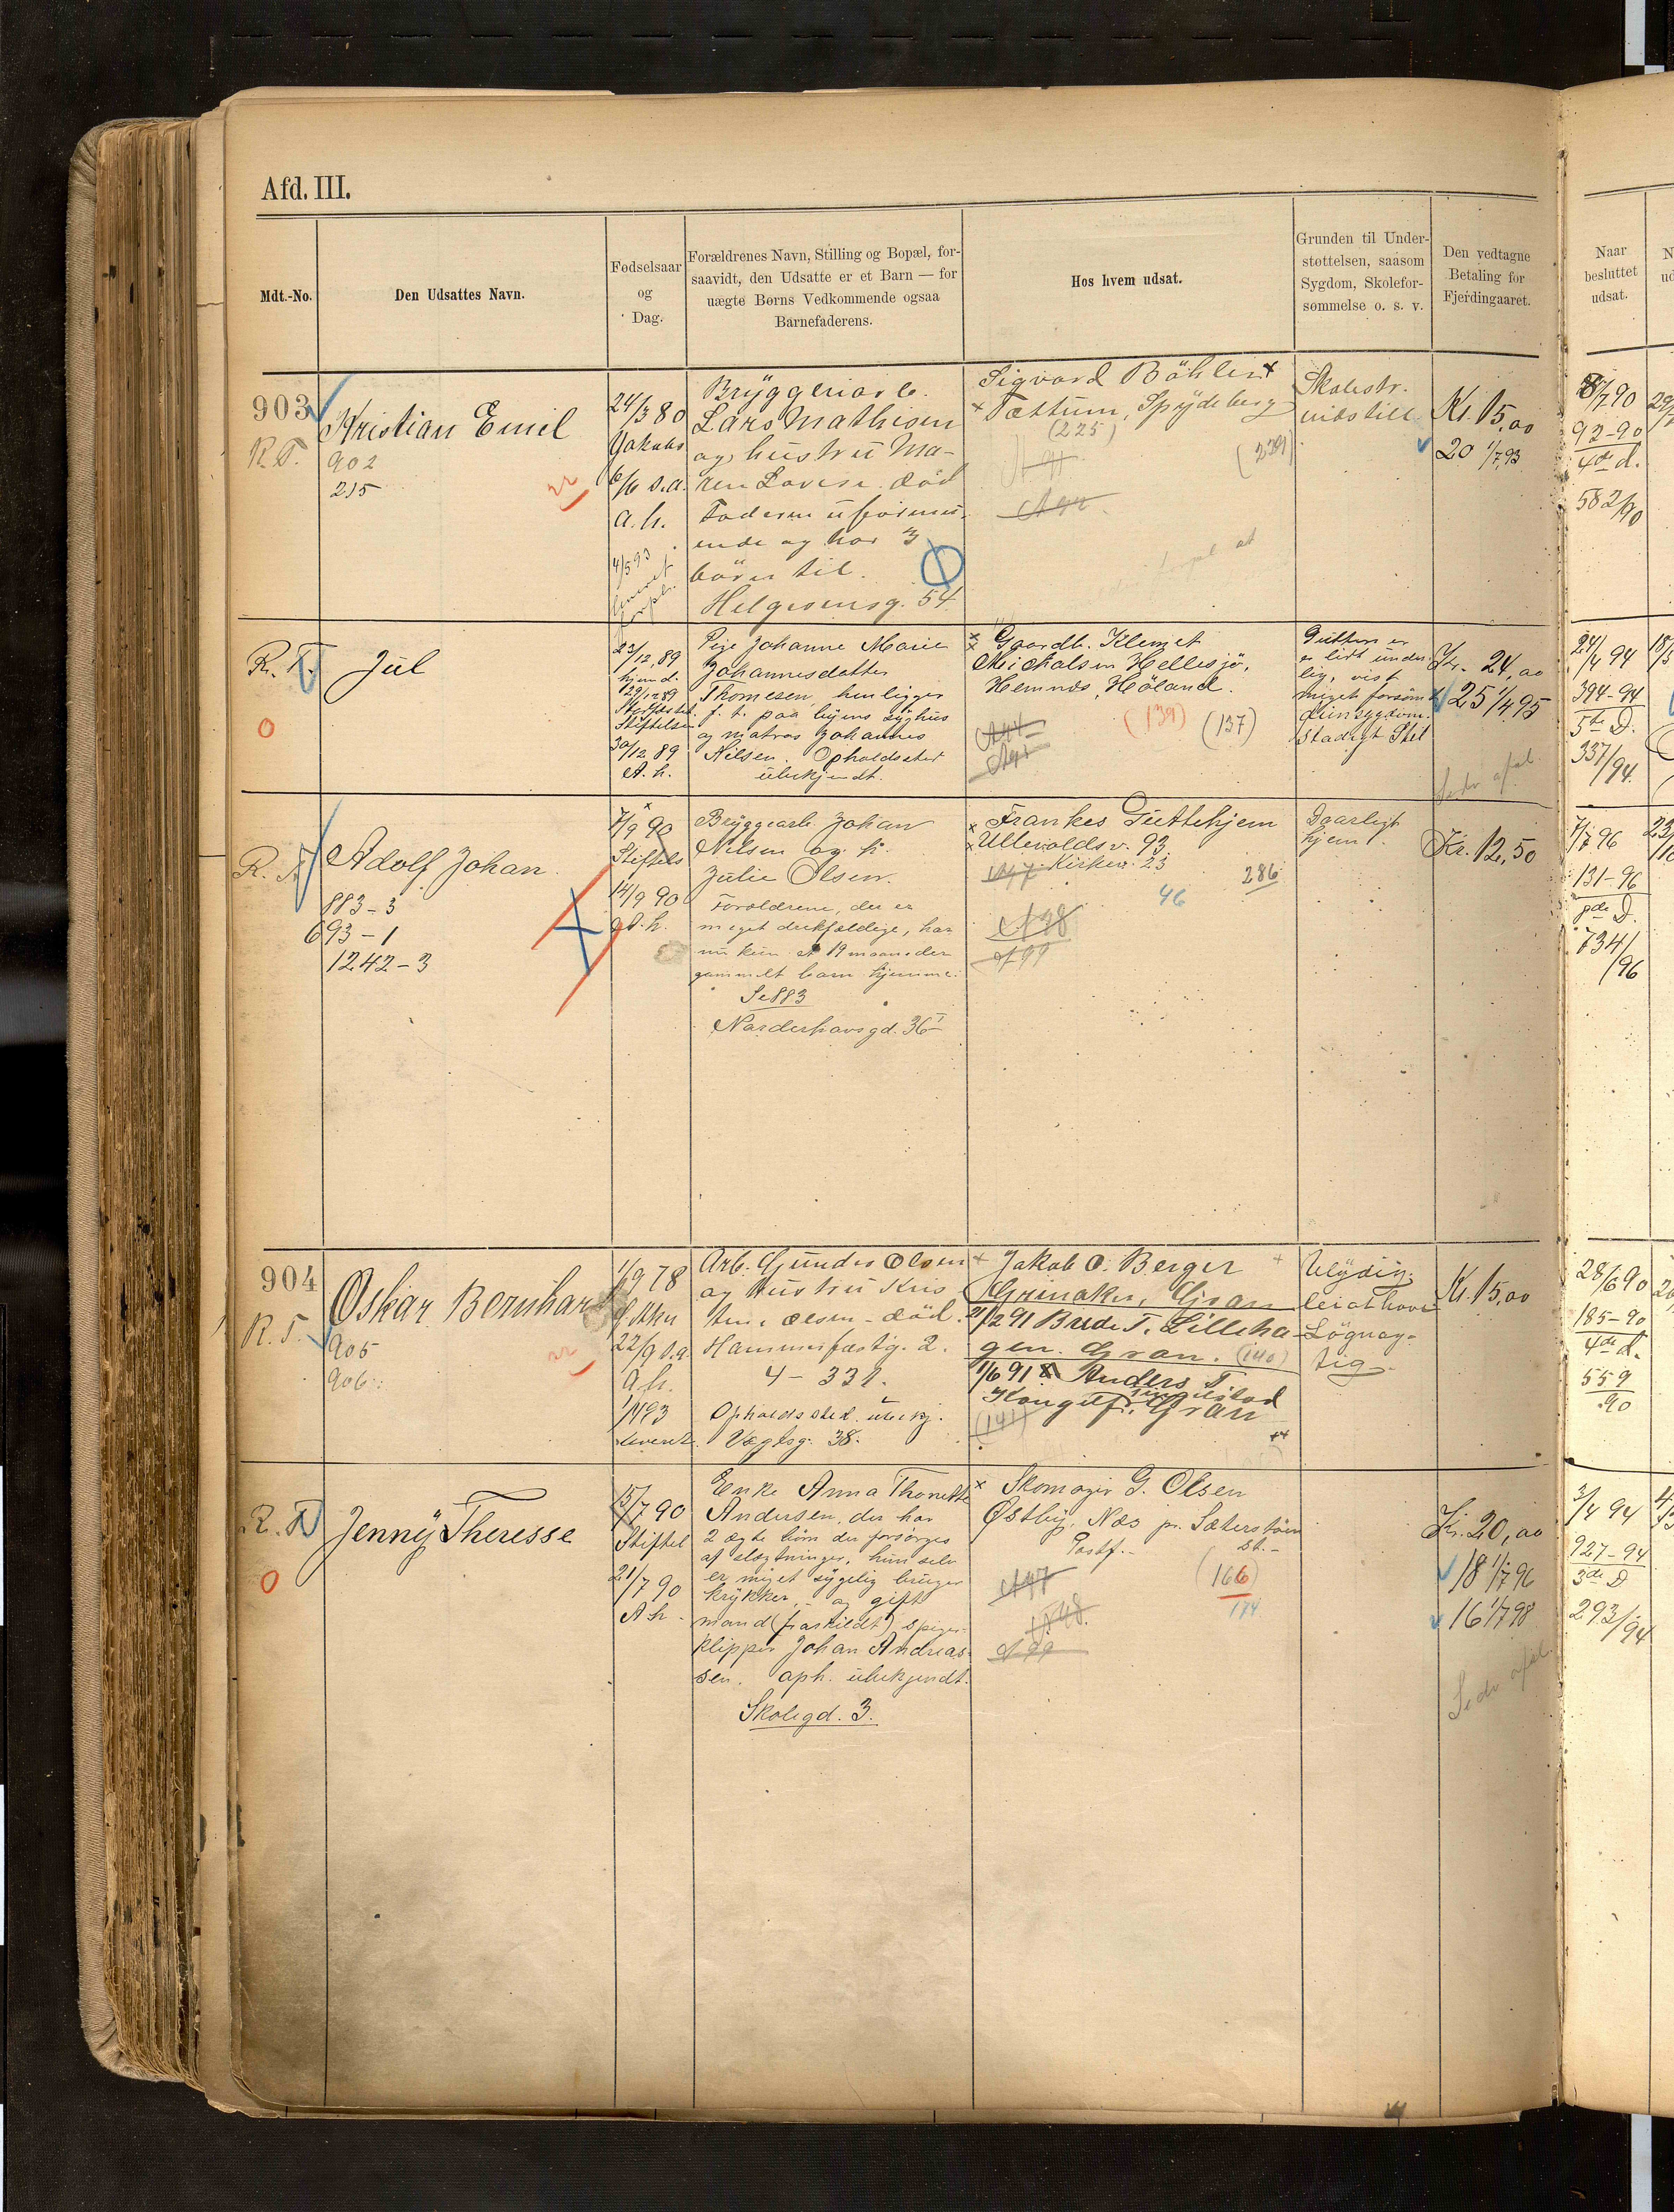 Afd. III.
Mdt.-No.
Den Udsattes Navn.
Fødselsaar
og
Dag.
Forældrenes Navn, Stilling og Bopæl, for-
saavidt, den Udsatte er et Barn — for
uægte Børns Vedkommende ogsaa
Barnefaderens.
Hos hvem udsat.
Grunden til Under-
støttelsen, saasom
Sygdom, Skolefor-
sømmelse o. s. v.
Den vedtagne
Betaling for
Fjerdingaaret.
Naar
besluttet
udsat.
903
R.T.
Kristian Emil
902
215
24/3 80
Jakobs
6/6 s.a.
a.h.
4/5 93
Bryggeriarb.
Lars Mathisen
og hustru Ma-
ren Lovise død
Faderen uformu-
ende og har 3
børn til.
Helgesensg. 54
Sigvard Böhler
Tættum, Spydeberg
(225)
(239)
Skolestr.
Kr. 15,00
20 1/7 93
8/7 90
92-90
4de d.
582/90
R. T.
Jul
23/12 89
hjemd.
29/12 89
Stiftelse
30/12 89
A. h.
Pige Johanne Marie
Johannesdatter
Thomesen henligger
f. t. paa byens syghus
og matros Johannes
Nilsen. Opholdssted
ubekjendt.
Gaardb. Klemet
Mickalsen Hellesjø,
Hemnæs, Høland.
(139)
(137)
Gutten er
lidt under-
lig, vist
meget forsømt
Stadigt Stel
Kr. 24,00
25 1/4 95
24/4 94
394-94
5te D.
337/94.
R. T.
Adolf Johan
883-3
693-1
1242-3
7/9 90
Stiftels
14/9 90
A. h.
Bryggearb. Johan
Nilsen og h.
Julie Olsen.
Forældrene, der er
meget drikfældige, har
nu kun et 19 maaneder
gammelt barn hjemme.
Se 883
Nordenhavsgd. 36 I
Frankes Guttehjem
Ullevoldsv. 93
Kirkev. 23
286
46
A 98
A 99
Daarligt
hjem.
Kr. 12,50
7/7 96
131-96
734/96
904
R. T.
Oskar Bernhard
905
906
1/9 78
22/9 s.a.
a.h.
Arb. Gunder Olsen
og hustru Kris
tine Olsen - død.
Hammerfestg. 2.
4 - 331.
Opholdssted ubekj.
Vogtsg. 38.
Jakob O. Berger
Grinaker, Gran
21/2 91 Brede T. Lilleha-
gen. Gran. (140)
1/6 91 Anders T.
Gran
(141)
Ulydig,
Løgnag-
tig
Kr. 15,00
28/6 90
185-90
4de d.
559
90
R. T.
Jenny Theresse
15/7 90
Stiftel
21/7 90
A h.
Enke Anna Thonette
Andersen, der har
2 ægte børn der forsørges
af slægtninger, hun selv
er meget sygelig bruger
krykker, - og gift
mand (fraskildt) spiger-
klipper Johan Andreas-
sen. oph. ubekjendt.
Skolegd. 3.
Skomager G. Olsen
Østby, Næs pr. Sæterstøen
Postf.-
St.-
(166)
174
A 97
A 98.
A 99
Kr. 20,00
18 1/7 96
16 1/7 98
3/4 94
927-94
3de D
293/94